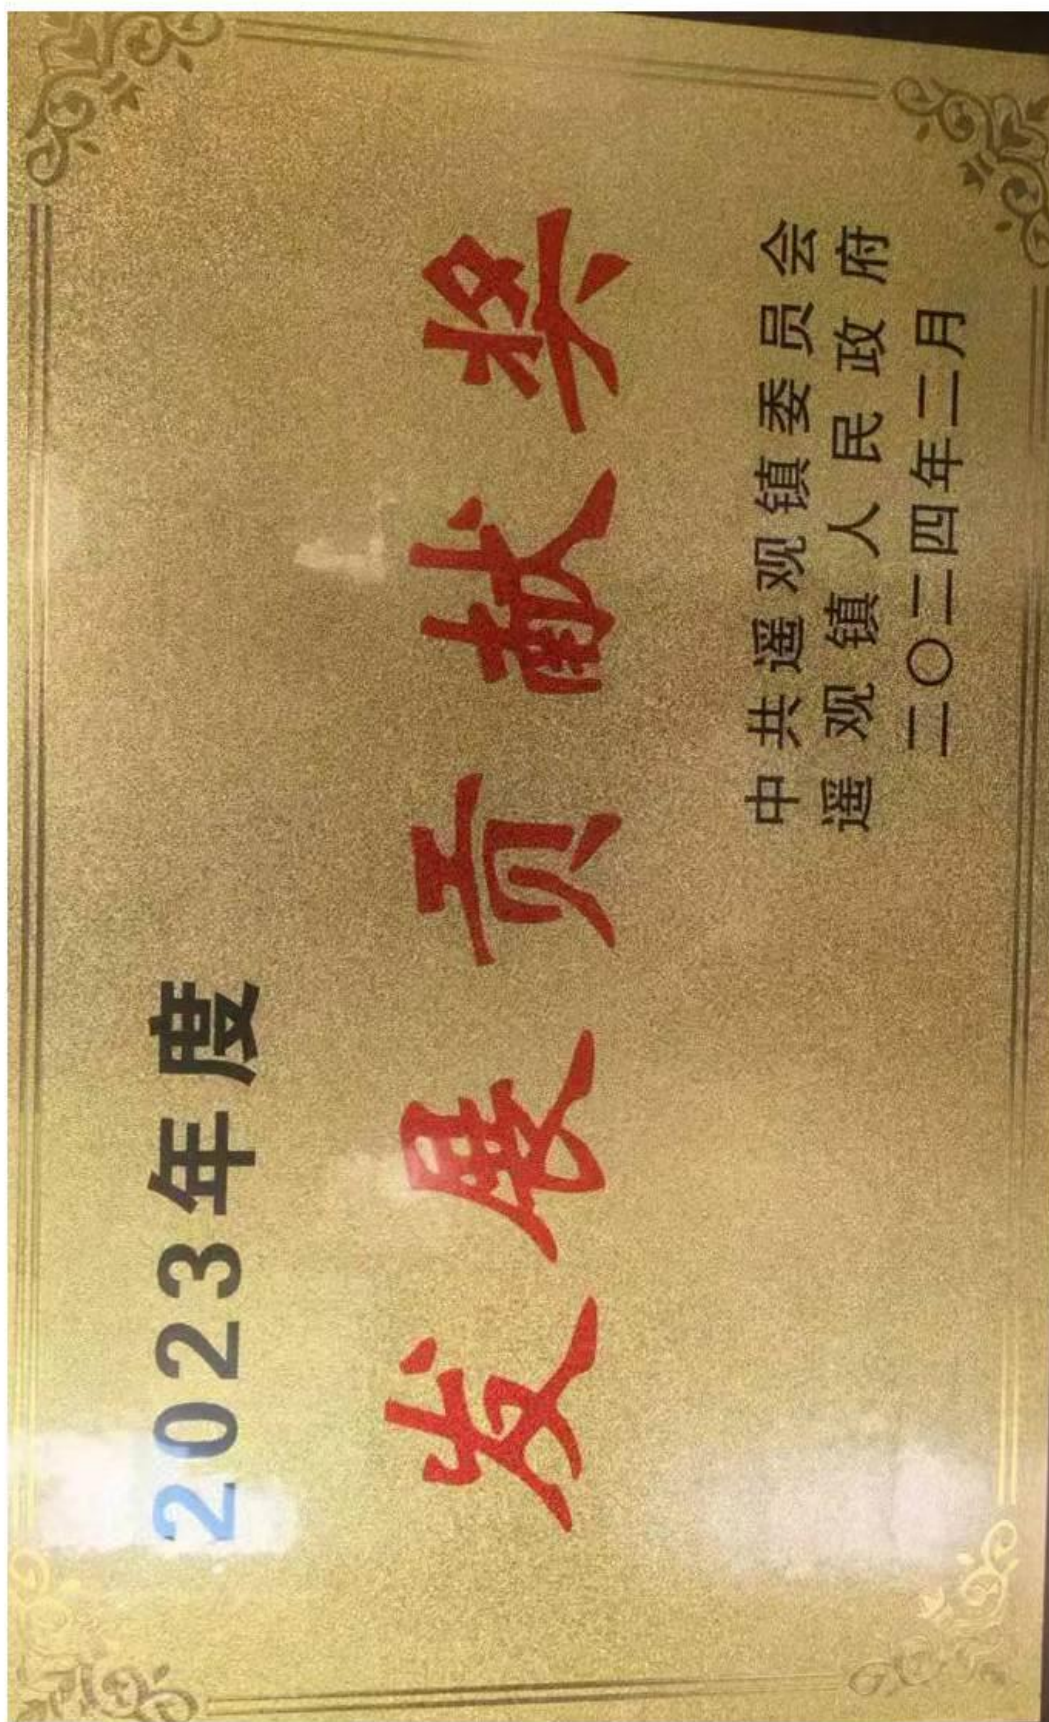 2023年度
发展贡献奖
中共遥观镇委员会
遥观镇人民政府
二〇二四年二月